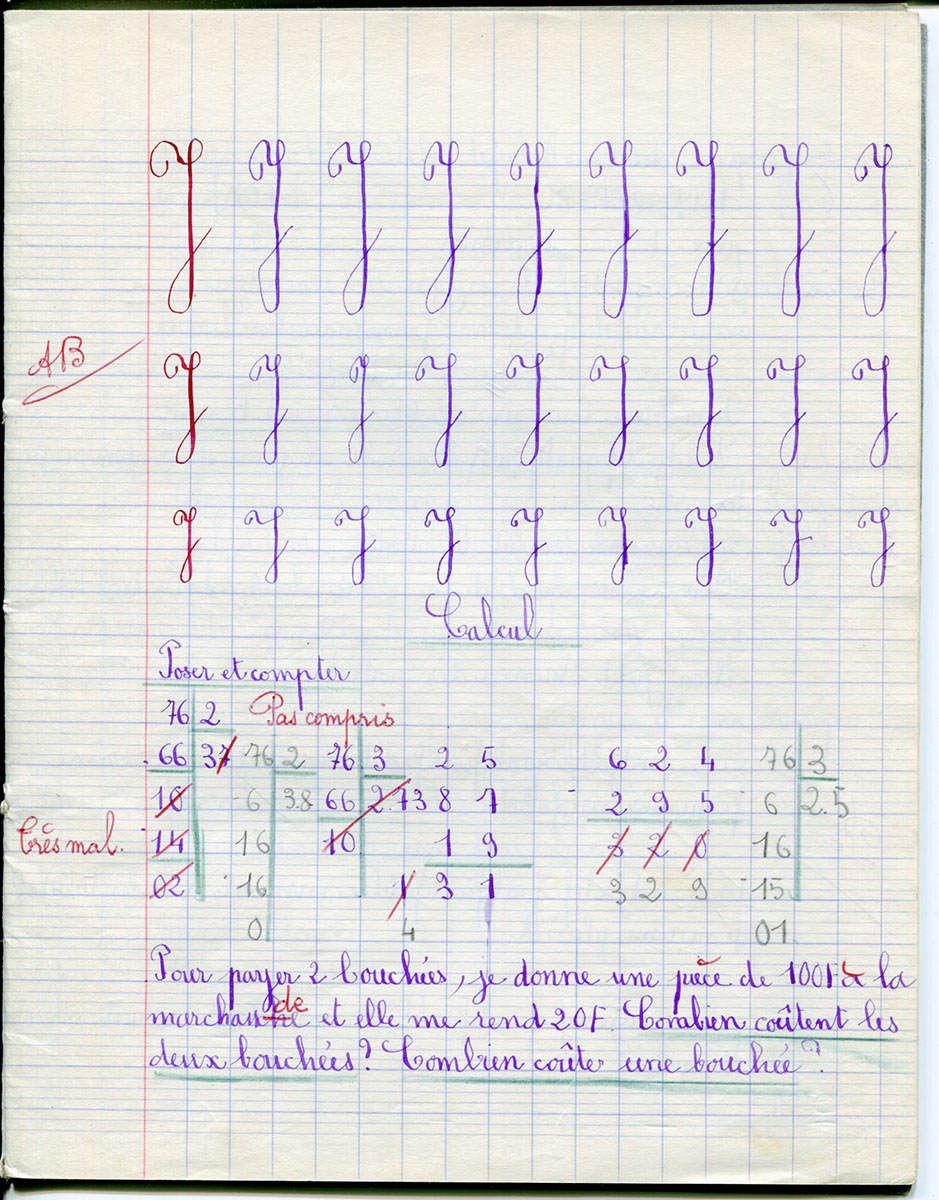 J J J J J J J J J
AB
J J J J J J J J J
J J J J J J J J J
Calcul
Poser et compter
76 2 Pas compris
66 37 76 2 76 3 2 5 6 2 4 76 3
10 6 3.8 66 2.73 8 7 - 2 9 5 6 2.5
Très mal. 14 16 10 1 9 3 2 0 16
02 16 1 3 1 3 2 9 15
0 4 01
Pour payer 2 bouchées, je donne une pièce de 100F à la
marchande et elle me rend 20F. Combien coûtent les
deux bouchées? Combien coûte une bouchée?